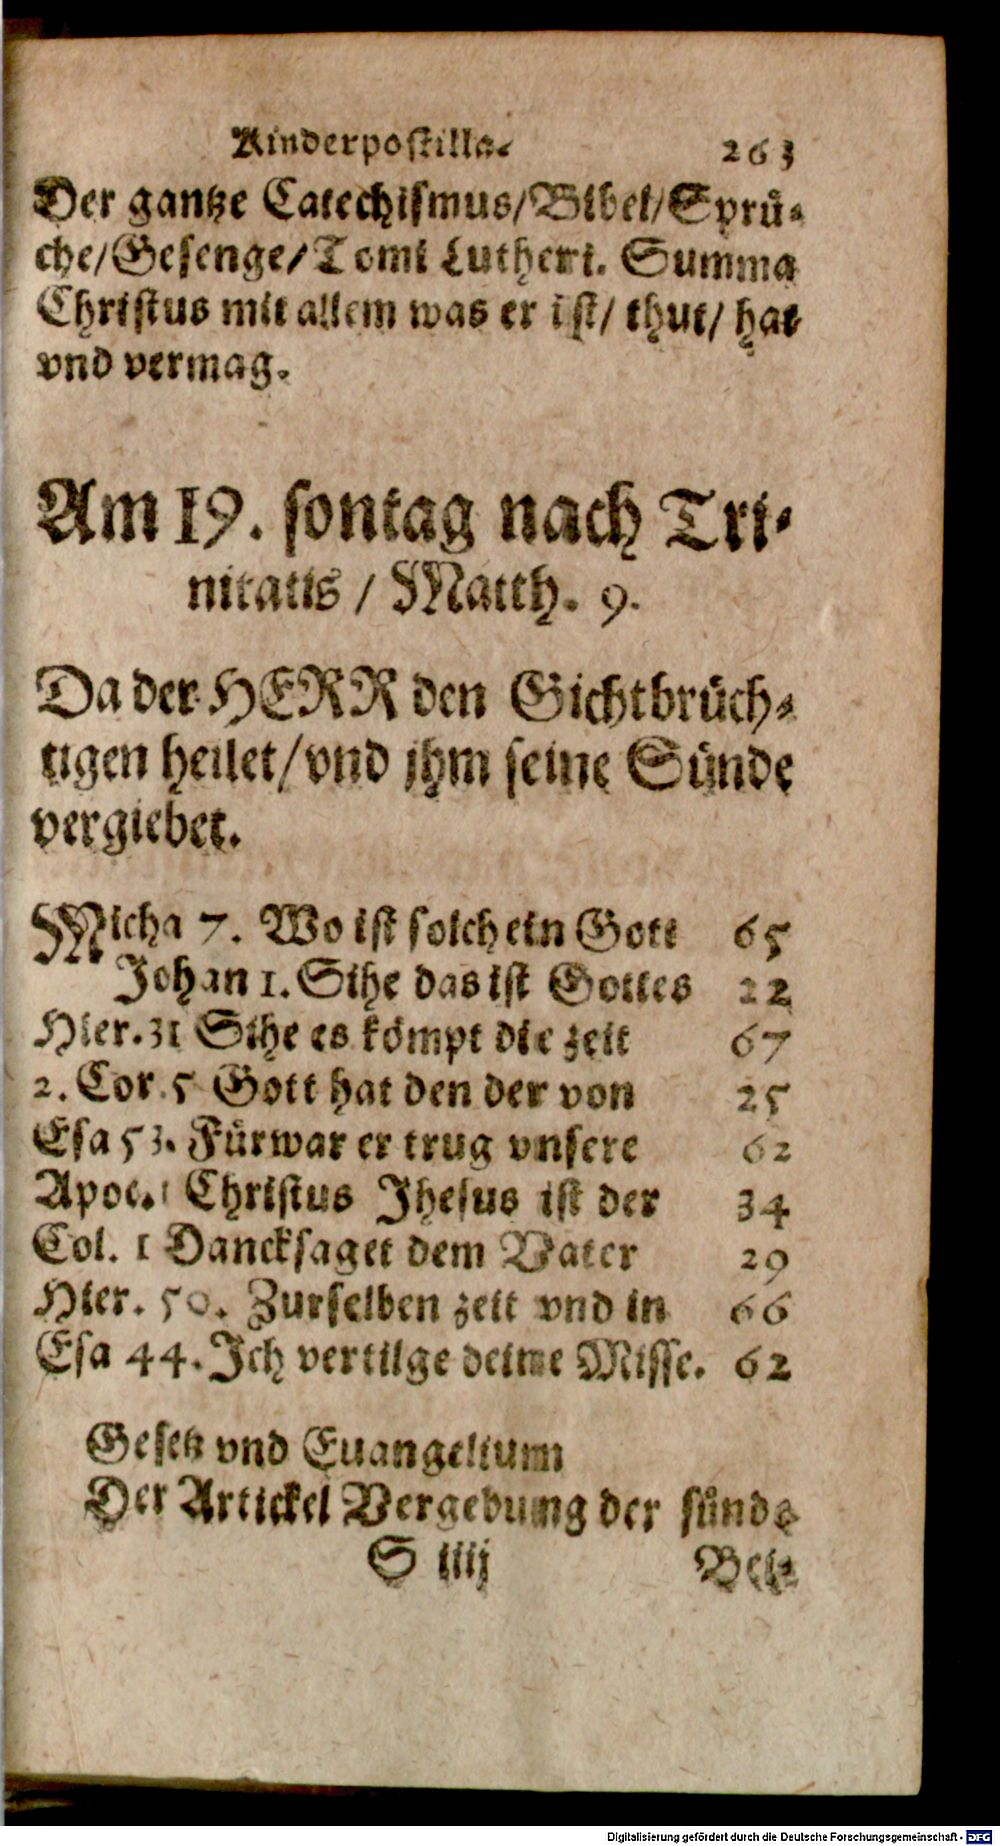 Kinderpostilla. 263
Der gantze Catechismus/Bibel/Sprü⸗
che/Gesenge/Tomi Lutheri. Summa
Christus mit allem was er ist/ thut/ hat
vnd vermag.
Am 19. sontag nach Tri⸗
nitatis / Matth. 9.
Da der HERR den Gichtbrüch⸗
tigen heilet/vnd jhm seine Sünde
vergiebet.
Micha 7. Wo ist solch ein Gott 65
Johan 1. Sihe das ist Gottes 22
Hier. 31 Sihe es kömpt die zeit 67
2. Cor. 5 Gott hat den der von 25
Esa 53. Fürwar er trug vnsere 62
Apoc. 1 Christus Jhesus ist der 34
Col. 1 Dancksaget dem Vater 29
Hier. 50. Zurselben zeit vnd in 66
Esa 44. Ich vertilge deine Misse. 62
Gesetz vnd Euangelium
Der Artickel Vergebung der sünde
S iiij
Digitalisierung gefördert durch die Deutsche Forschungsgemeinschaft - DFG